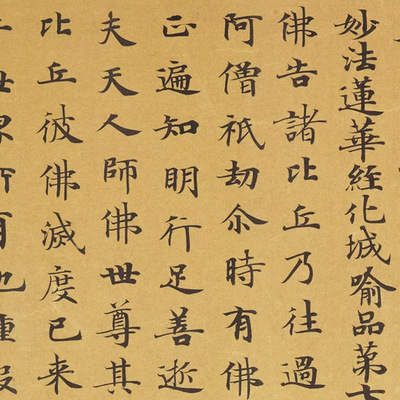 妙法蓮華經化城喻品第七
佛告諸比丘乃往過
阿僧祇劫尒時有佛
正遍知明行足善逝
夫天人師佛世尊其
比丘彼佛滅度已来
千世界所有地種假